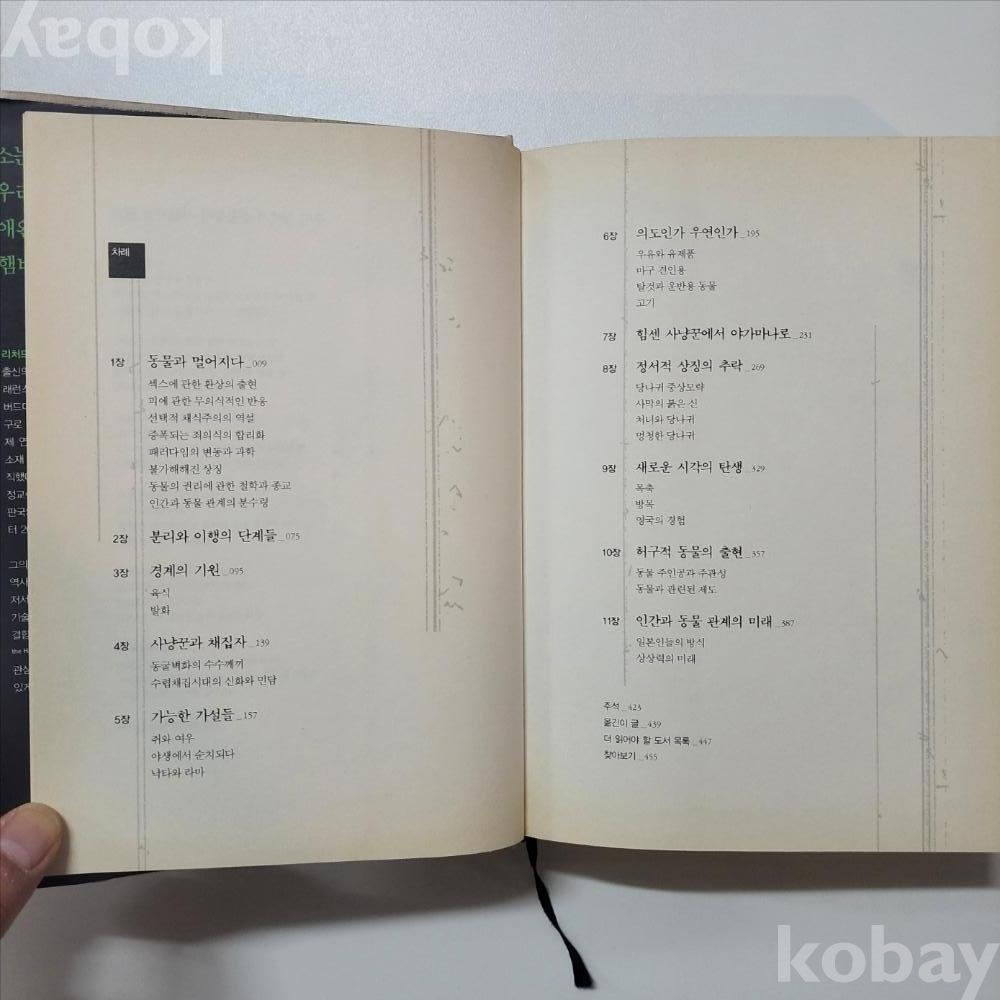 kobay
소는
햄버
리처드
출신의
버드대
구로
제 연
소재
직했다
터 20
그의
역사
저서
기술
결함
the H
관심
있게
차례
1장 동물과 멀어지다 _009
섹스에 관한 환상의 출현
피에 관한 무의식적인 반응
선택적 채식주의의 역설
증폭되는 죄의식의 합리화
패러다임의 변동과 과학
불가해해진 상징
동물의 권리에 관한 철학과 종교
인간과 동물 관계의 분수령
2장 분리와 이행의 단계들 _075
3장 경계의 기원 _095
육식
발화
4장 사냥꾼과 채집자 _139
동굴벽화의 수수께끼
수렵채집시대의 신화와 민담
5장 가능한 가설들 _157
쥐와 여우
야생에서 순치되다
낙타와 라마
6장 의도인가 우연인가 _195
우유와 유제품
마구 견인용
탈것과 운반용 동물
고기
7장 힘센 사냥꾼에서 야가마나로 _231
8장 정서적 상징의 추락 _269
당나귀 중상모략
사막의 붉은 신
처녀와 당나귀
멍청한 당나귀
9장 새로운 시각의 탄생 _329
목축
방목
영국의 경험
10장 허구적 동물의 출현 _357
동물 주인공과 주관성
동물과 관련된 제도
11장 인간과 동물 관계의 미래 _387
일본인들의 방식
상상력의 미래
주석 _423
옮긴이 글 _439
더 읽어야 할 도서 목록 _447
찾아보기 _455
kobay